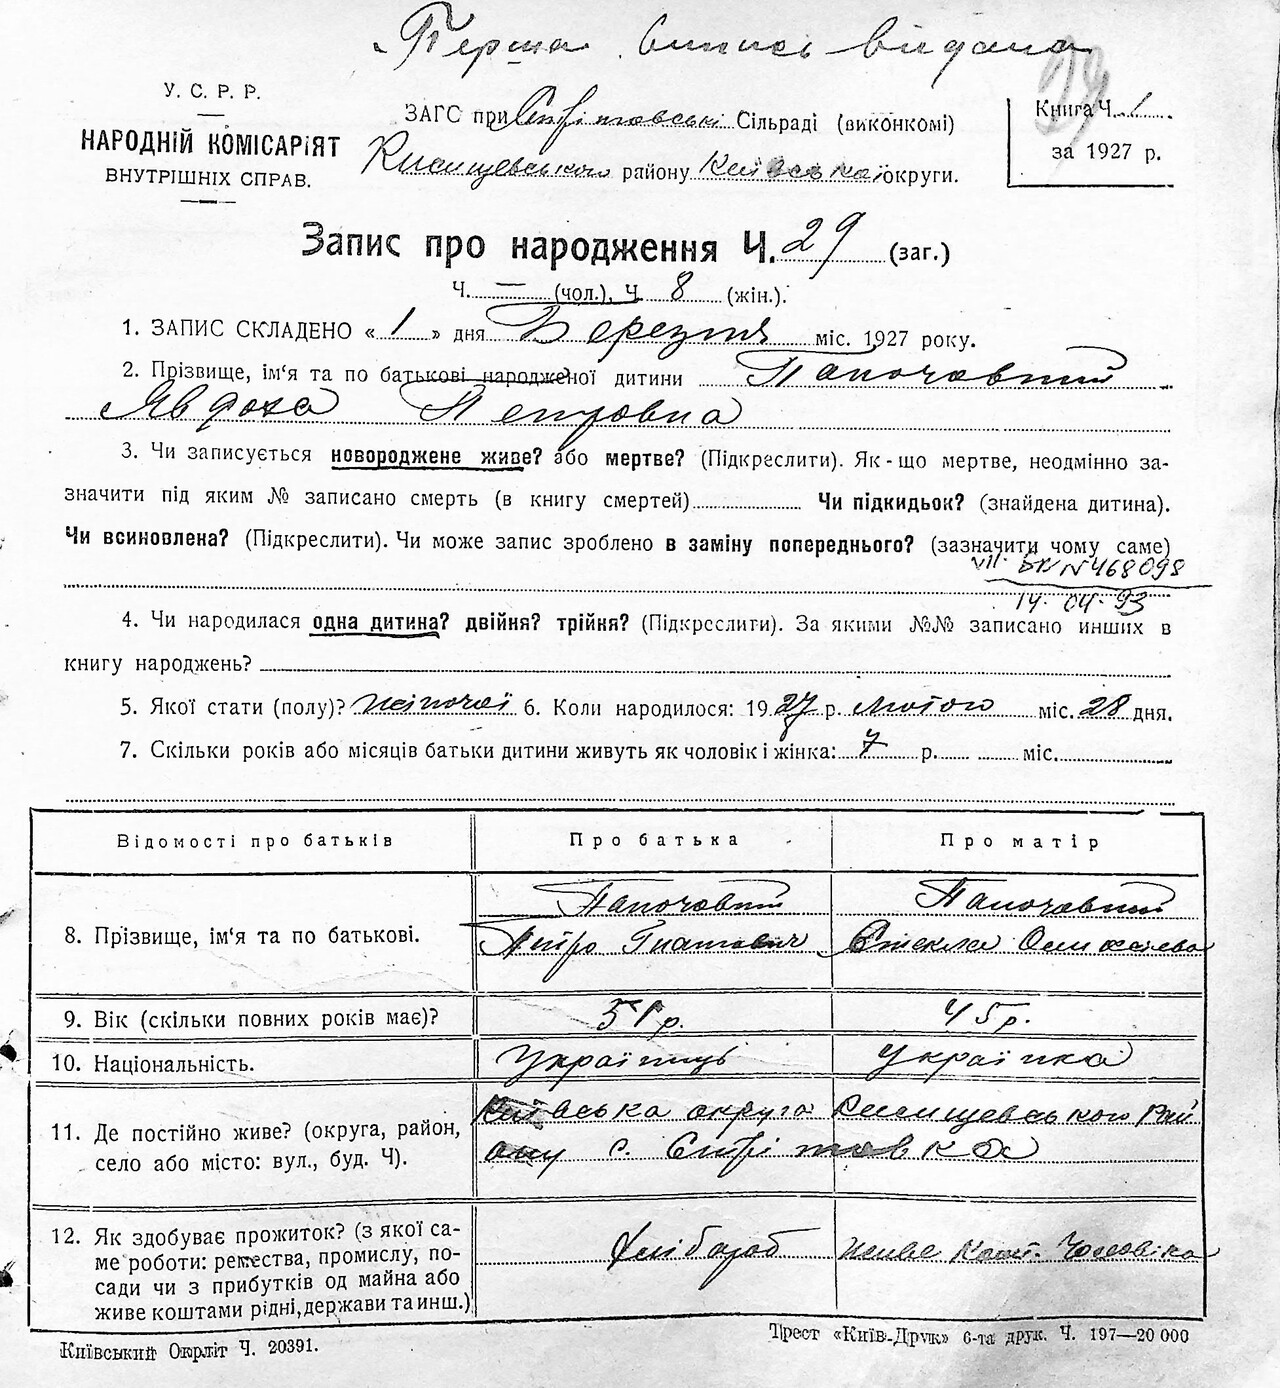 Перша випись видана
У. С. Р. Р.
НАРОДНІЙ КОМІСАРІЯТ
ВНУТРІШНІХ СПРАВ.
ЗАГС при Сільраді (виконкомі)
району Київської округи.
Книга Ч. 1
за 1927 р.
Запис про народження Ч. 29 (заг.)
Ч. — (чол.), Ч. 8 (жін.).
1. ЗАПИС СКЛАДЕНО «1» дня Березня міс. 1927 року.
2. Прізвище, ім'я та по батькові народженої дитини
Явдоха Петровна
3. Чи записується новороджене живе? або мертве? (Підкреслити). Як-що мертве, неодмінно за-
значити під яким № записано смерть (в книгу смертей) Чи підкидьок? (знайдена дитина).
Чи всиновлена? (Підкреслити). Чи може запис зроблено в заміну попереднього? (зазначити чому саме)
VII-БК N 468098
14.04.93
4. Чи народилася одна дитина? двійня? трійня? (Підкреслити). За якими №№ записано инших в
книгу народжень?
5. Якої стати (полу)? жіночої 6. Коли народилося: 1927 р. лютого міс. 28 дня.
7. Скільки років або місяців батьки дитини живуть як чоловік і жінка: 7 р. міс.
Відомості про батьків Про батька Про матір
8. Прізвище, ім'я та по батькові.
Петро Гнатович
9. Вік (скільки повних років має)? 51 р. 45 р.
10. Національність. Українці Українка
11. Де постійно живе? (округа, район, село або місто: вул., буд. Ч). Київська округа Кисищевського рай
ону с.
12. Як здобуває прожиток? (з якої са-
ме роботи: ремества, промислу, по-
сади чи з прибутків од майна або
живе коштами рідні, держави та инш.)
хлібороб живе кошт. Чоловіка
Київський Окрліт Ч. 20391.
Трест «Київ-Друк» 6-та друк. Ч. 197—20 000